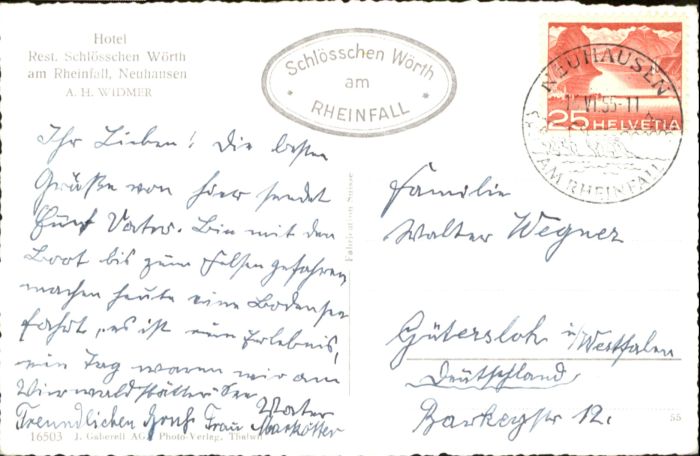 Hotel
Rest. Schlösschen Wörth
am Rheinfall, Neuhausen
A. H. WIDMER
Schlösschen Wörth
am
RHEINFALL
NEUHAUSEN
VI 55-11
AM RHEINFALL
25 HELVETIA
Ihr Lieben! Die besten
Grüße von hier sendet
Vater. Bin mit dem
Boot bis zum Felsen gefahren
machen heute eine Bodensee
fahrt, es ist ein Erlebnis,
ein Tag waren wir am
Vierwaldstätter See
Vater
Freundlichen Gruß Frau Markötter
Familie
Walter Wegner
Gütersloh i/Westfalen
Deutschland
Barkeystr 12.
Fabrication Suisse
55
16503 J. Gaberell AG., Photo-Verlag, Thalwil